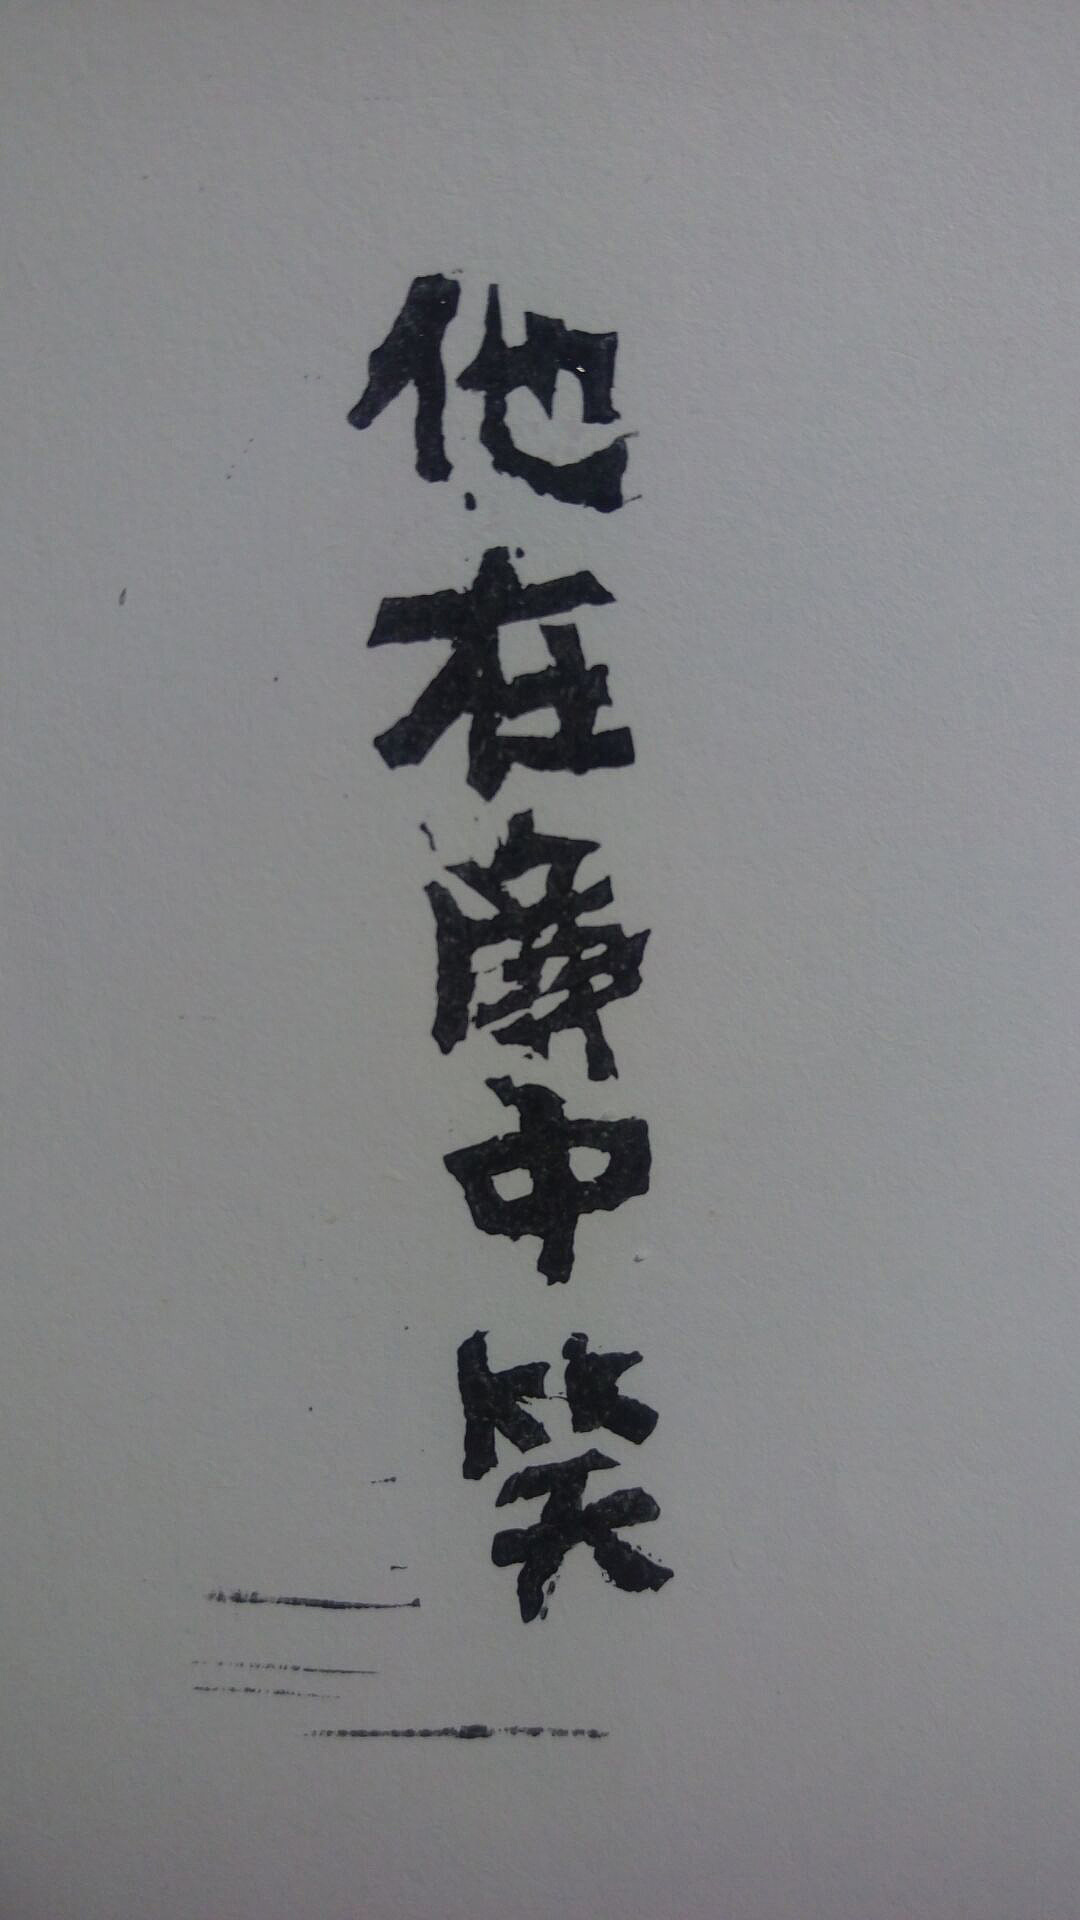 他在中笑